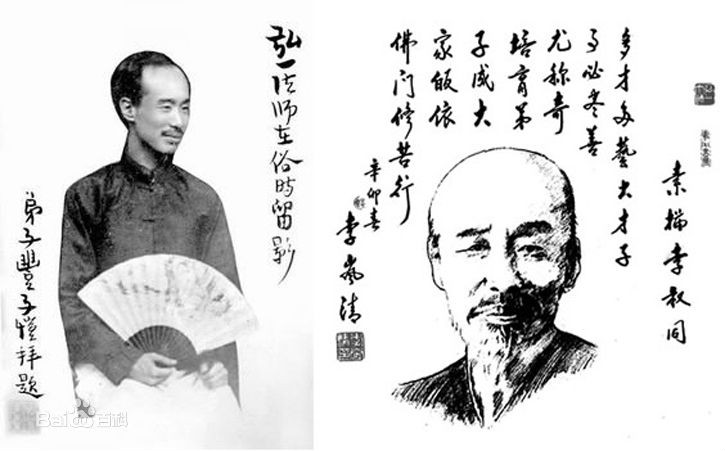 弘一法师在俗时留影
弟子豐子愷拜題
Baidu百科
素描李叔同
多才多藝大才子
事必尽善
尤称奇
培育弟
子成大
家皈依
佛门修苦行
辛卯春
李岚清